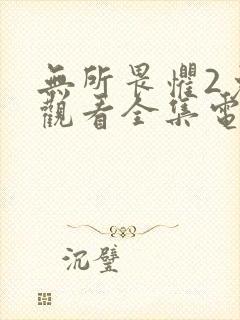 無所畏懼2
觀看全集電
沉璧